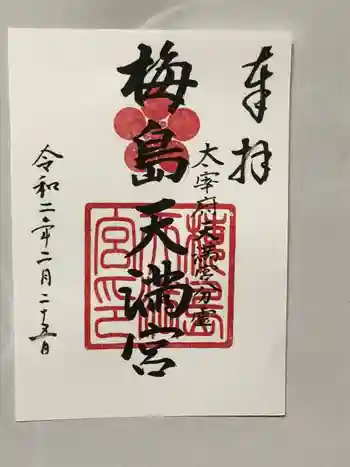 奉拝
太宰府天満宮分霊
梅島天満宮
令和二年二月二十五日
梅島天満宮印